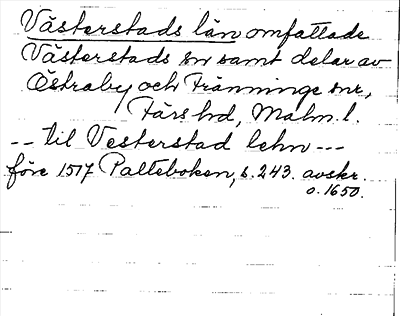 Västerstads län omfattade
Västerstads sn samt delar av
Östraby och Tränninge snr,
Färs hd, Malm. l.
-- til Vesterstad lehn ---
före 1517 Palteboken, s. 243. avskr.
o. 1650.